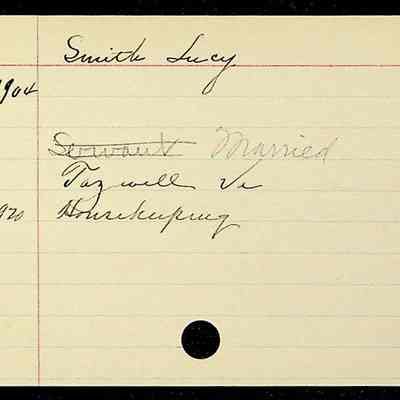 Smith Lucy
904
Servant Married
Tazwell Va
920 Housekeeping